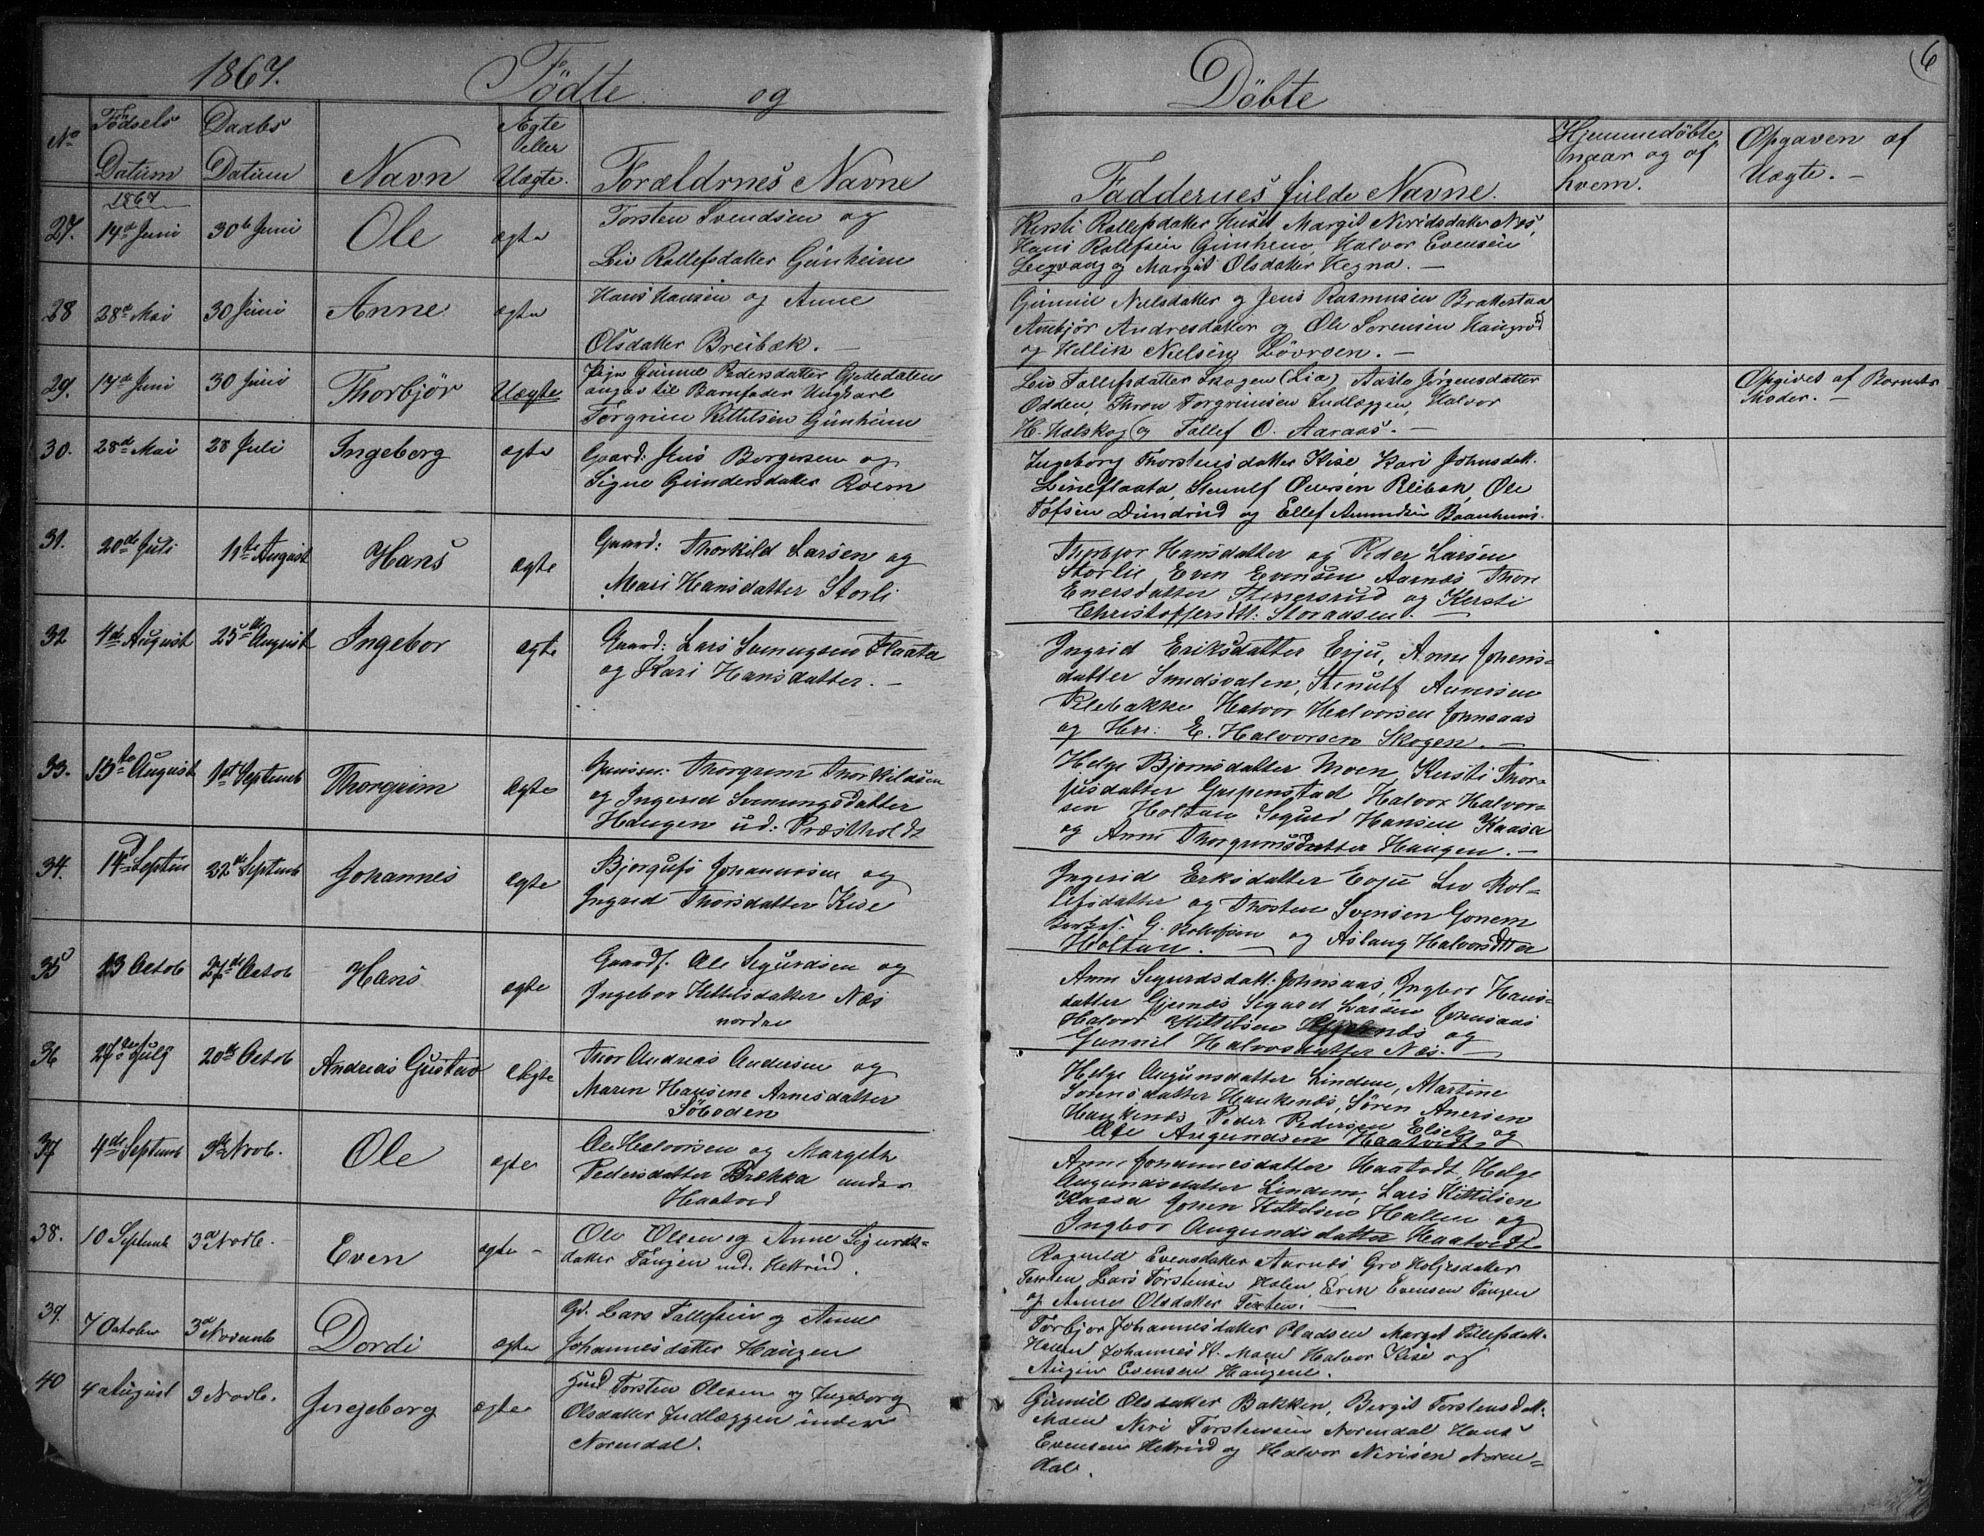 1867. Födte og Döbte 6
No Födsels Datum Daabs Datum Navn Ægte eller Uægte. Forældrnes Navne Faddernes fulde Navne. Hjemmedöbte naar og af hvem. Opgaven af Uægte. —
1867
27. 14de Juni 30te Juni Ole ægte Torsten Svendsen og
Liv Rollefsdatter Gunheim
Kersti Rollefsdatter Huset Margit Neridsdatter Næs,
Hans Rollefsen Gunheim, Halvor Evensen
Leqvaag og Margit Olsdatter Hegna. —
28 28de Mai 30 Juni Anne ægte Hans Hansen og Anne
Olsdatter Breibæk. —
Gunnil Nielsdatter og Jens Rasmusen Brattestaa
Anbjör Andresdatter og Ole Sorensen Haugröd
og Hellik Nielsen Lövroen. —
29. 17de Juni 30 Juni Thorbjör Uægte Pige Gunnil Pedersdatter Gjededalen
angav til Barnfader Ungkarl
Torgrim Kittilsen Gunheim
Liv Tollefsdatter Skogen (Lia) Aaslo Jörgensdatter
Odden, Thron Torgrimsen Indlæggen, Halvor
H. Halskog og Tollef O. Aaraas. —
Opgives af Barnets
Moder. —
30. 28de Mai 28 Juli Ingeborg ægte Gaard: Jens Borgersen og
Signe Gundersdatter Roem
Ingeborg Thorstensdatter Kise, Kari Johnsdatt.
Lineflaata, Stenulf Oversen Plibak, Ole
Tofsen Dundrud og Ellef Amundsen Baanhuus.
31. 20de Juli 11te August Hans ægte Gaard: Thorkild Larsen og
Mari Hansdatter Storli
Thorbjor Hansdatter og Peder Larsen
Storlie Even Evensen Aarnæs Thore
Enersdatter Stenersrud og Kersti
Christoffersdtt: Storaasen. —
32 4de August 25de August Ingebor ægte Gaard: Lars Somugsen Flaata
og Kari Hansdatter. —
Ingrid Eriksdatter Evju, Anne Johens-
datter Smedsvalen, Stenulf Aversen
Plebakke Halvor Halvorsen Johnsaas
og Hr: E. Halvorsen Skogen. —
33. 15te August 1st Septemb Thorgrim Ægte Thorgrim Thorkildsen
og Ingerid Somungsdatter
Haugen ud: Præstholdt
Helge Bjornsdatter Moen, Kersti Thor-
jusdatter Guspenstad Halvor Halvor-
sen Holtan Segurd Hansen Kaasa
og Anne Thorgrimsdatter Haugen. —
34. 14d Septem 22de Septemb Johannes Ægte Bjorgufs Johannesen og
Ingrid Thorsdatter Kise
Ingerid Erksdatter Evju Liv Rol-
lefsdatter og Thosten Svensen Gonem
G. Rollefsen og Aslaug Halvorsdtta
Holtan.
35 13 Octob 27de Octob Hans ægte Gaardf. Ole Segurdsen og
Ingebor Kittilsdatter Næs
nordre
Anne Segurdsdatt: Johnsaas, Ingbor Hans-
datter Gjernæs Segurd Larsen Jorensaas
Halvor Kittilsen og
Gunnil Halvorsdatter Næs. —
36 27de July 20de Octob Andreas Gustav Ægte Thor Andreas Andersen og
Maren Hansine Arnesdatter
Söboden
Helge Augunsdatter Lindem, Martine
Sorensdatter Haukenæs, Sören Anersen
Haukenæs Peder Pedersen og
Ole Augundsen Haatvedt.
37 4de Septemb 3de Novb. Ole ægte Ole Halvorsen og Margeth
Pedersdatter Bækka under
Haatved
Anne Johannesdatter Haatvdt, Helge
Augundsdatter Lindem, Lars Kittilsen
Kaasa Johen Kittelsen Hallen og
Ingbor Augundsdatter Haatvedt
38. 10 Septemb 3d Novb. Even ægte Ole Olsen og Anne Sigurds-
datter Tangen und. Hettrud.
Ragnild Evensdatter Aarnæs Gro Holjesdatter
Texten Lars Torstensen Holen, Even Evensen Tangen
og Anne Olsdatter Texten. —
39. 7 October 3d Novemb Dordi ægte Gd. Lars Tollefsen og Anne
Johannesdatter Haugen
Torbjor Johannesdatter Pladsen Marget Tollefsdatt.
Halvor Kise og
Augun Evensen Haugene.
40 4 August 3 Novb. Ingeborg ægte Husd Torsten Olesen og Ingeborg
Olsdatter Indlæggen under
Norendal.
Gunnil Olsdatter Bakken, Bergit Torstensdatt.
Moen Neri Torstensen Norendal Hans
Evensen Hettrud og Halvor Nerisen Noren-
dal.